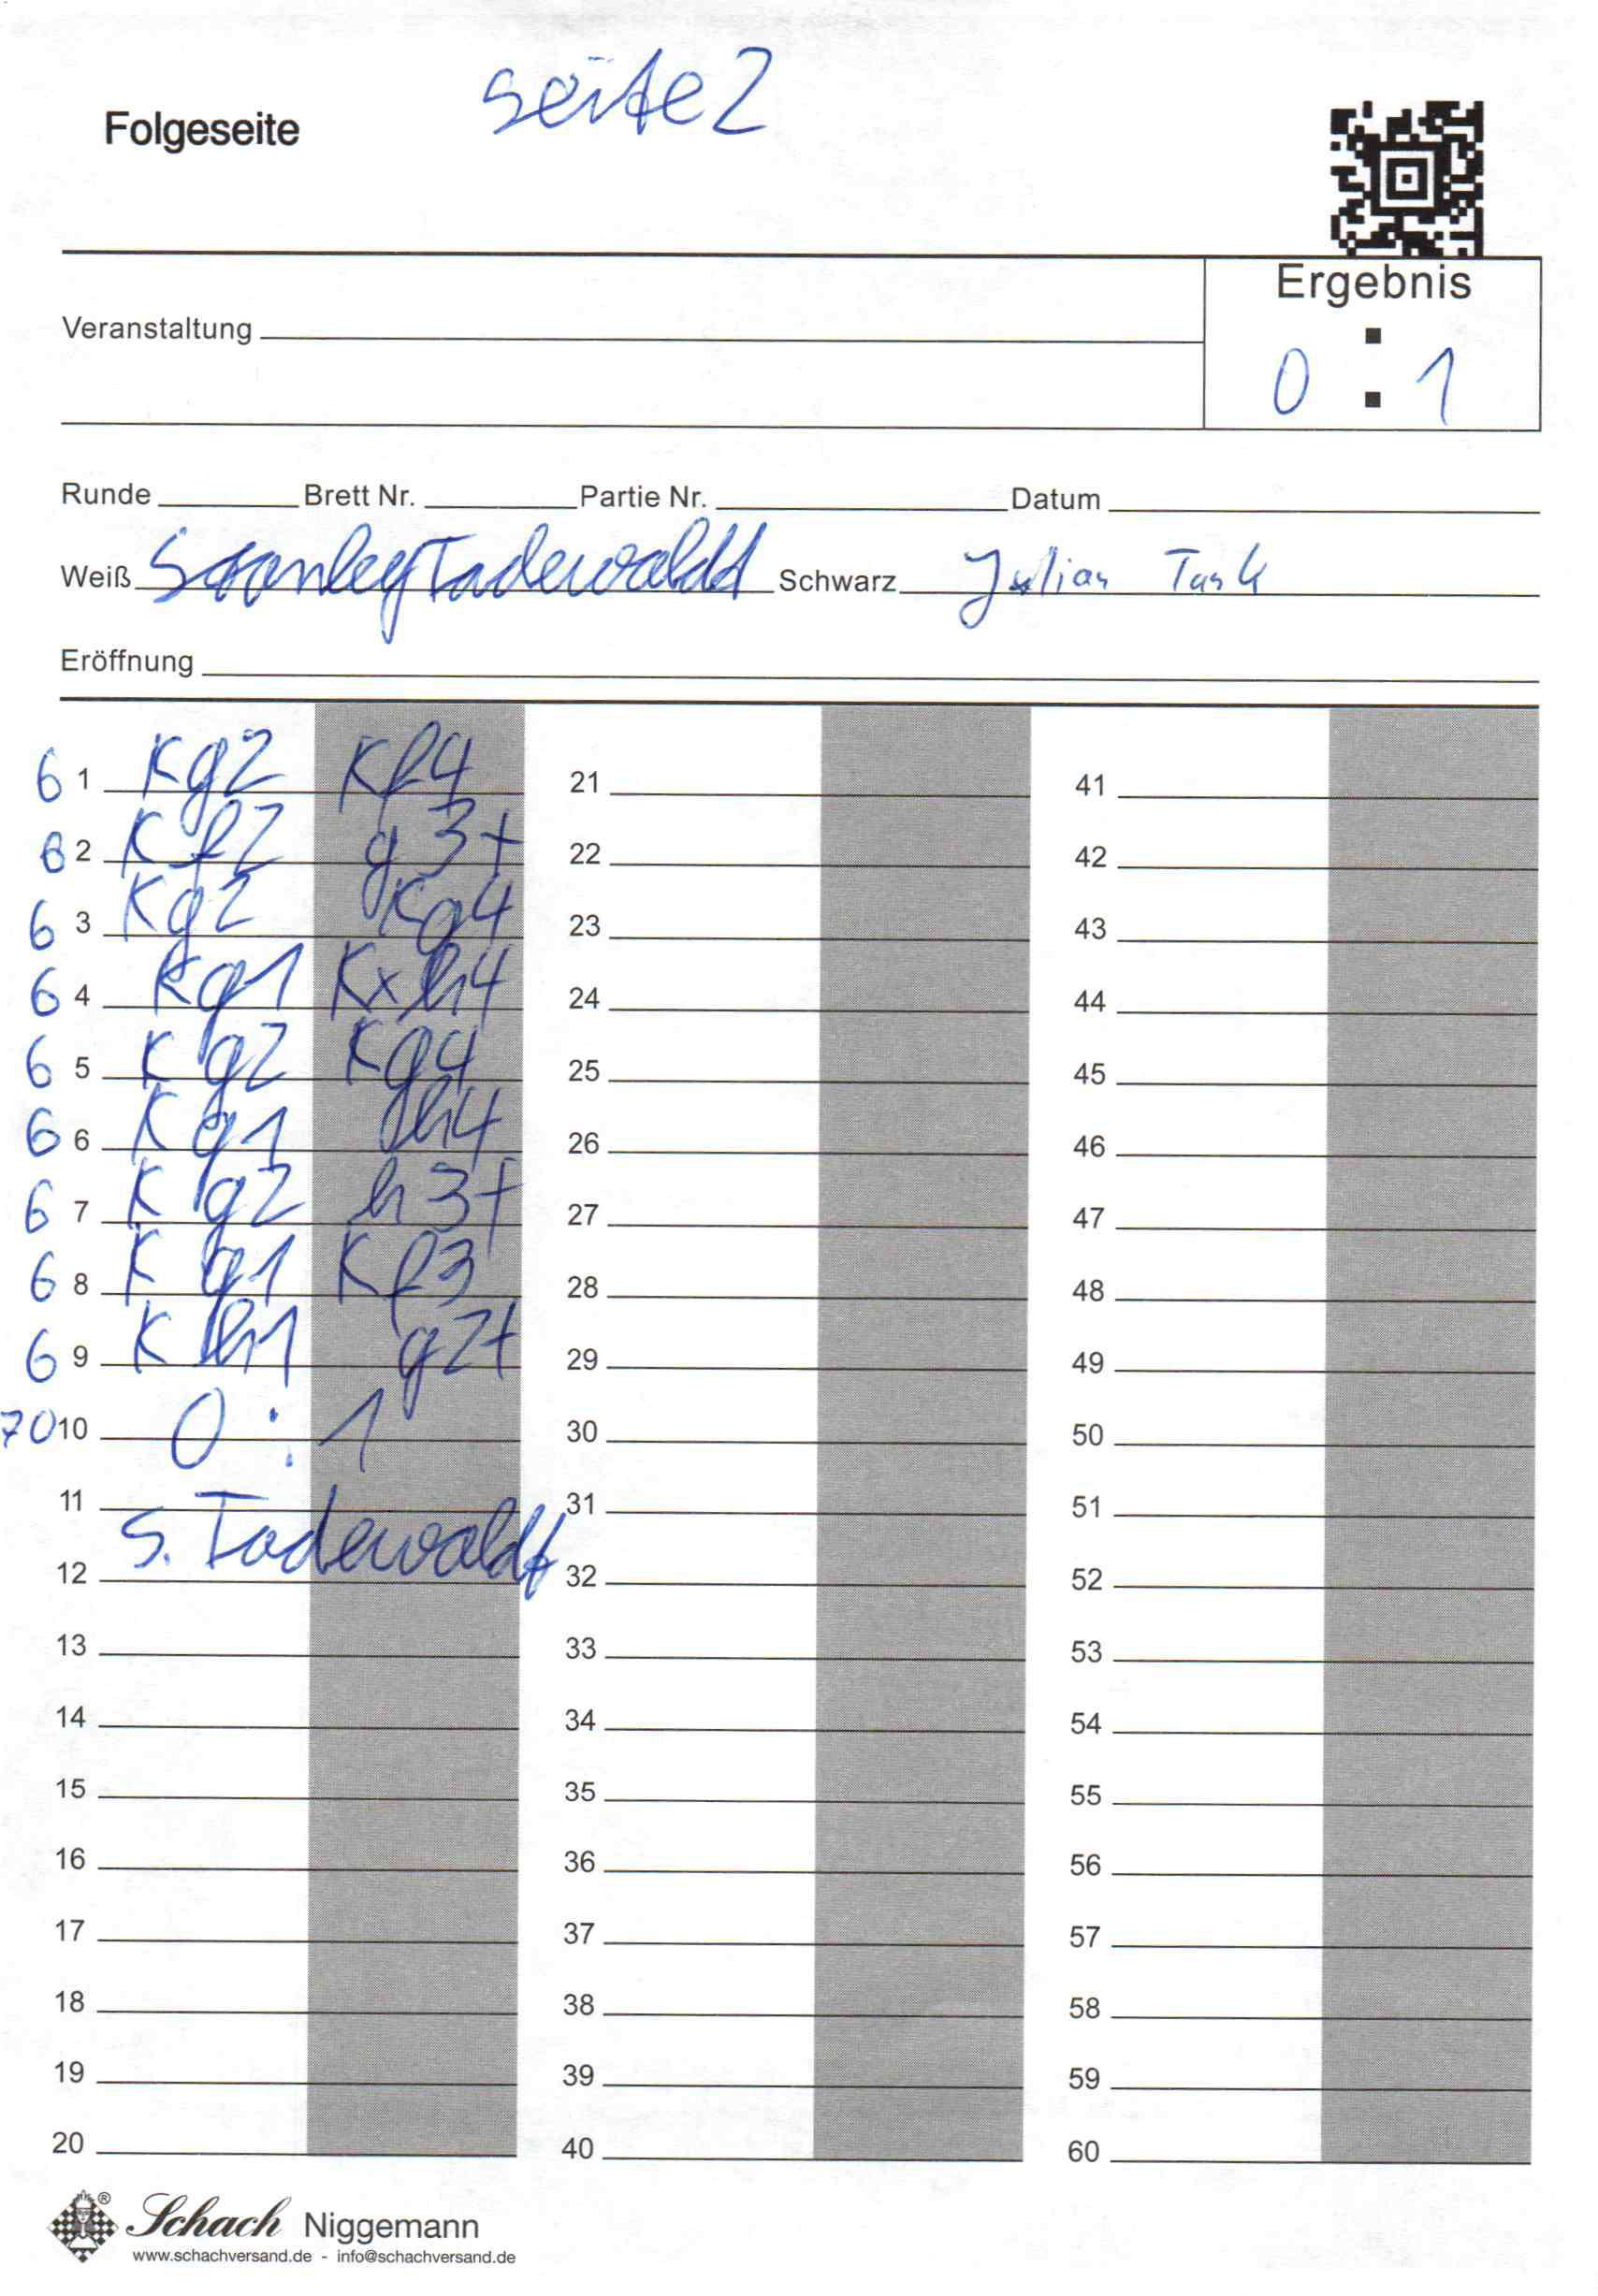 seite 2
Folgeseite
Ergebnis
Veranstaltung
0 : 1
Runde Brett Nr. Partie Nr. Datum
Weiß Stanley Tadewaldt Schwarz Julian Task
Eröffnung
6 1 Kg2 Kf4 21 41
6 2 Kf2 g3+ 22 42
6 3 Kg2 Kg4 23 43
6 4 Kg1 Kxh4 24 44
6 5 Kg2 Kg4 25 45
6 6 Kg1 h4 26 46
6 7 Kg2 h3+ 27 47
6 8 Kg1 Kf3 28 48
6 9 Kh1 g2+ 29 49
70 10 0 : 1 30 50
11 31 51
S. Tadewaldt
12 32 52
13 33 53
14 34 54
15 35 55
16 36 56
17 37 57
18 38 58
19 39 59
20 40 60
® Schach Niggemann
www.schachversand.de - info@schachversand.de